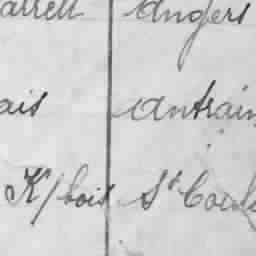 arrell Angers
ais Antrain
K/bois St Coul